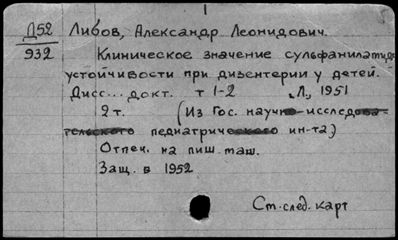 Д52 Либов, Александр Леонидович.
932 Клиническое значение сульфанилатид-
устойчивости при дизентерии у детей.
Дисс... докт. т 1-2 Л., 1951
2 т. (Из Гос. научно-исследова-
тельского педиатрического ин-та)
Отпеч. на пиш. маш.
Защ. в 1952
Ст. след. карт